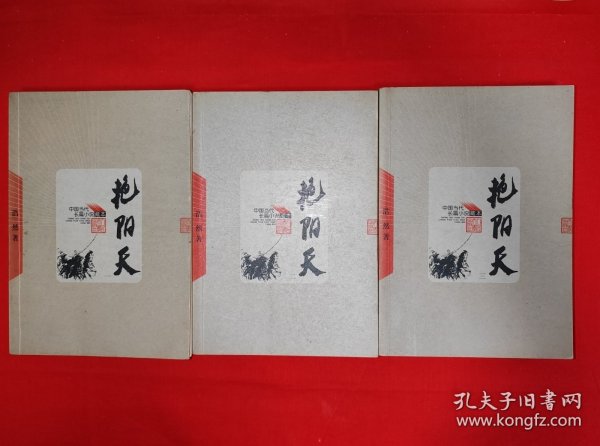 浩然 著
中国当代
长篇小说藏本
艳阳天
浩然 著
中国当代
长篇小说藏本
艳阳天
浩然 著
中国当代
长篇小说藏本
艳阳天
孔夫子旧书网
www.kongfz.com